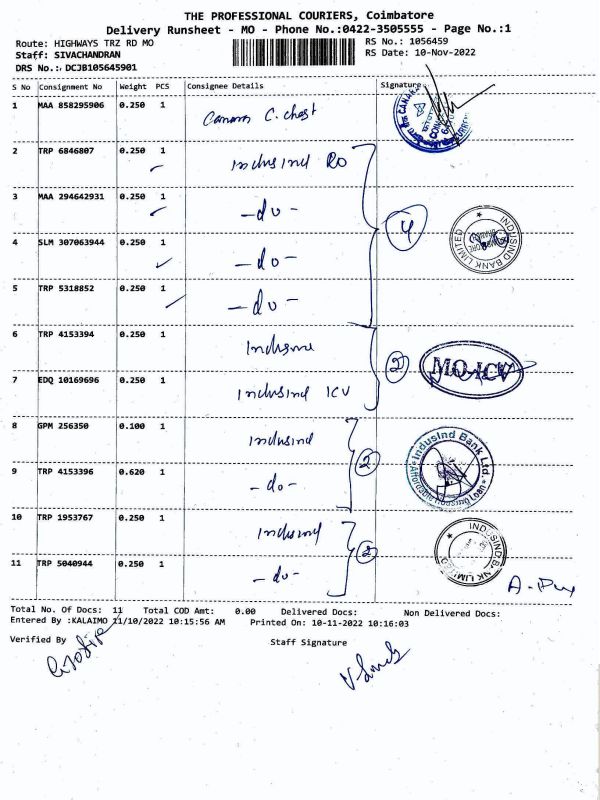 THE PROFESSIONAL COURIERS, Coimbatore
Delivery Runsheet - MO - Phone No.:0422-3505555 - Page No.:1
Route: HIGHWAYS TRZ RD MO
RS No.: 1056459
Staff: SIVACHANDRAN
RS Date: 10-Nov-2022
DRS No.: DCJB105645901
S No Consignment No Weight PCS Consignee Details Signature
1 MAA 858295906 0.250 1
2 TRP 6846807 0.250 1 Indusind RO
3 MAA 294642931 0.250 1 -do-
4 SLM 307063944 0.250 1 -do-
5 TRP 5318852 0.250 1 -do-
4
INDUSIND BANK LIMITED
6 TRP 4153394 0.250 1
7 EDQ 10169696 0.250 1 Indusind ICV
2
MO-ICV
8 GPM 256350 0.100 1 Indusind
9 TRP 4153396 0.620 1 -do-
2
IndusInd Bank Ltd.
10 TRP 1953767 0.250 1 Indusind
11 TRP 5040944 0.250 1 -do-
2
INDUSIND BANK LIMITED
Total No. Of Docs: 11 Total COD Amt: 0.00 Delivered Docs: Non Delivered Docs:
Entered By :KALAIMO 11/10/2022 10:15:56 AM Printed On: 10-11-2022 10:16:03
Verified By Staff Signature